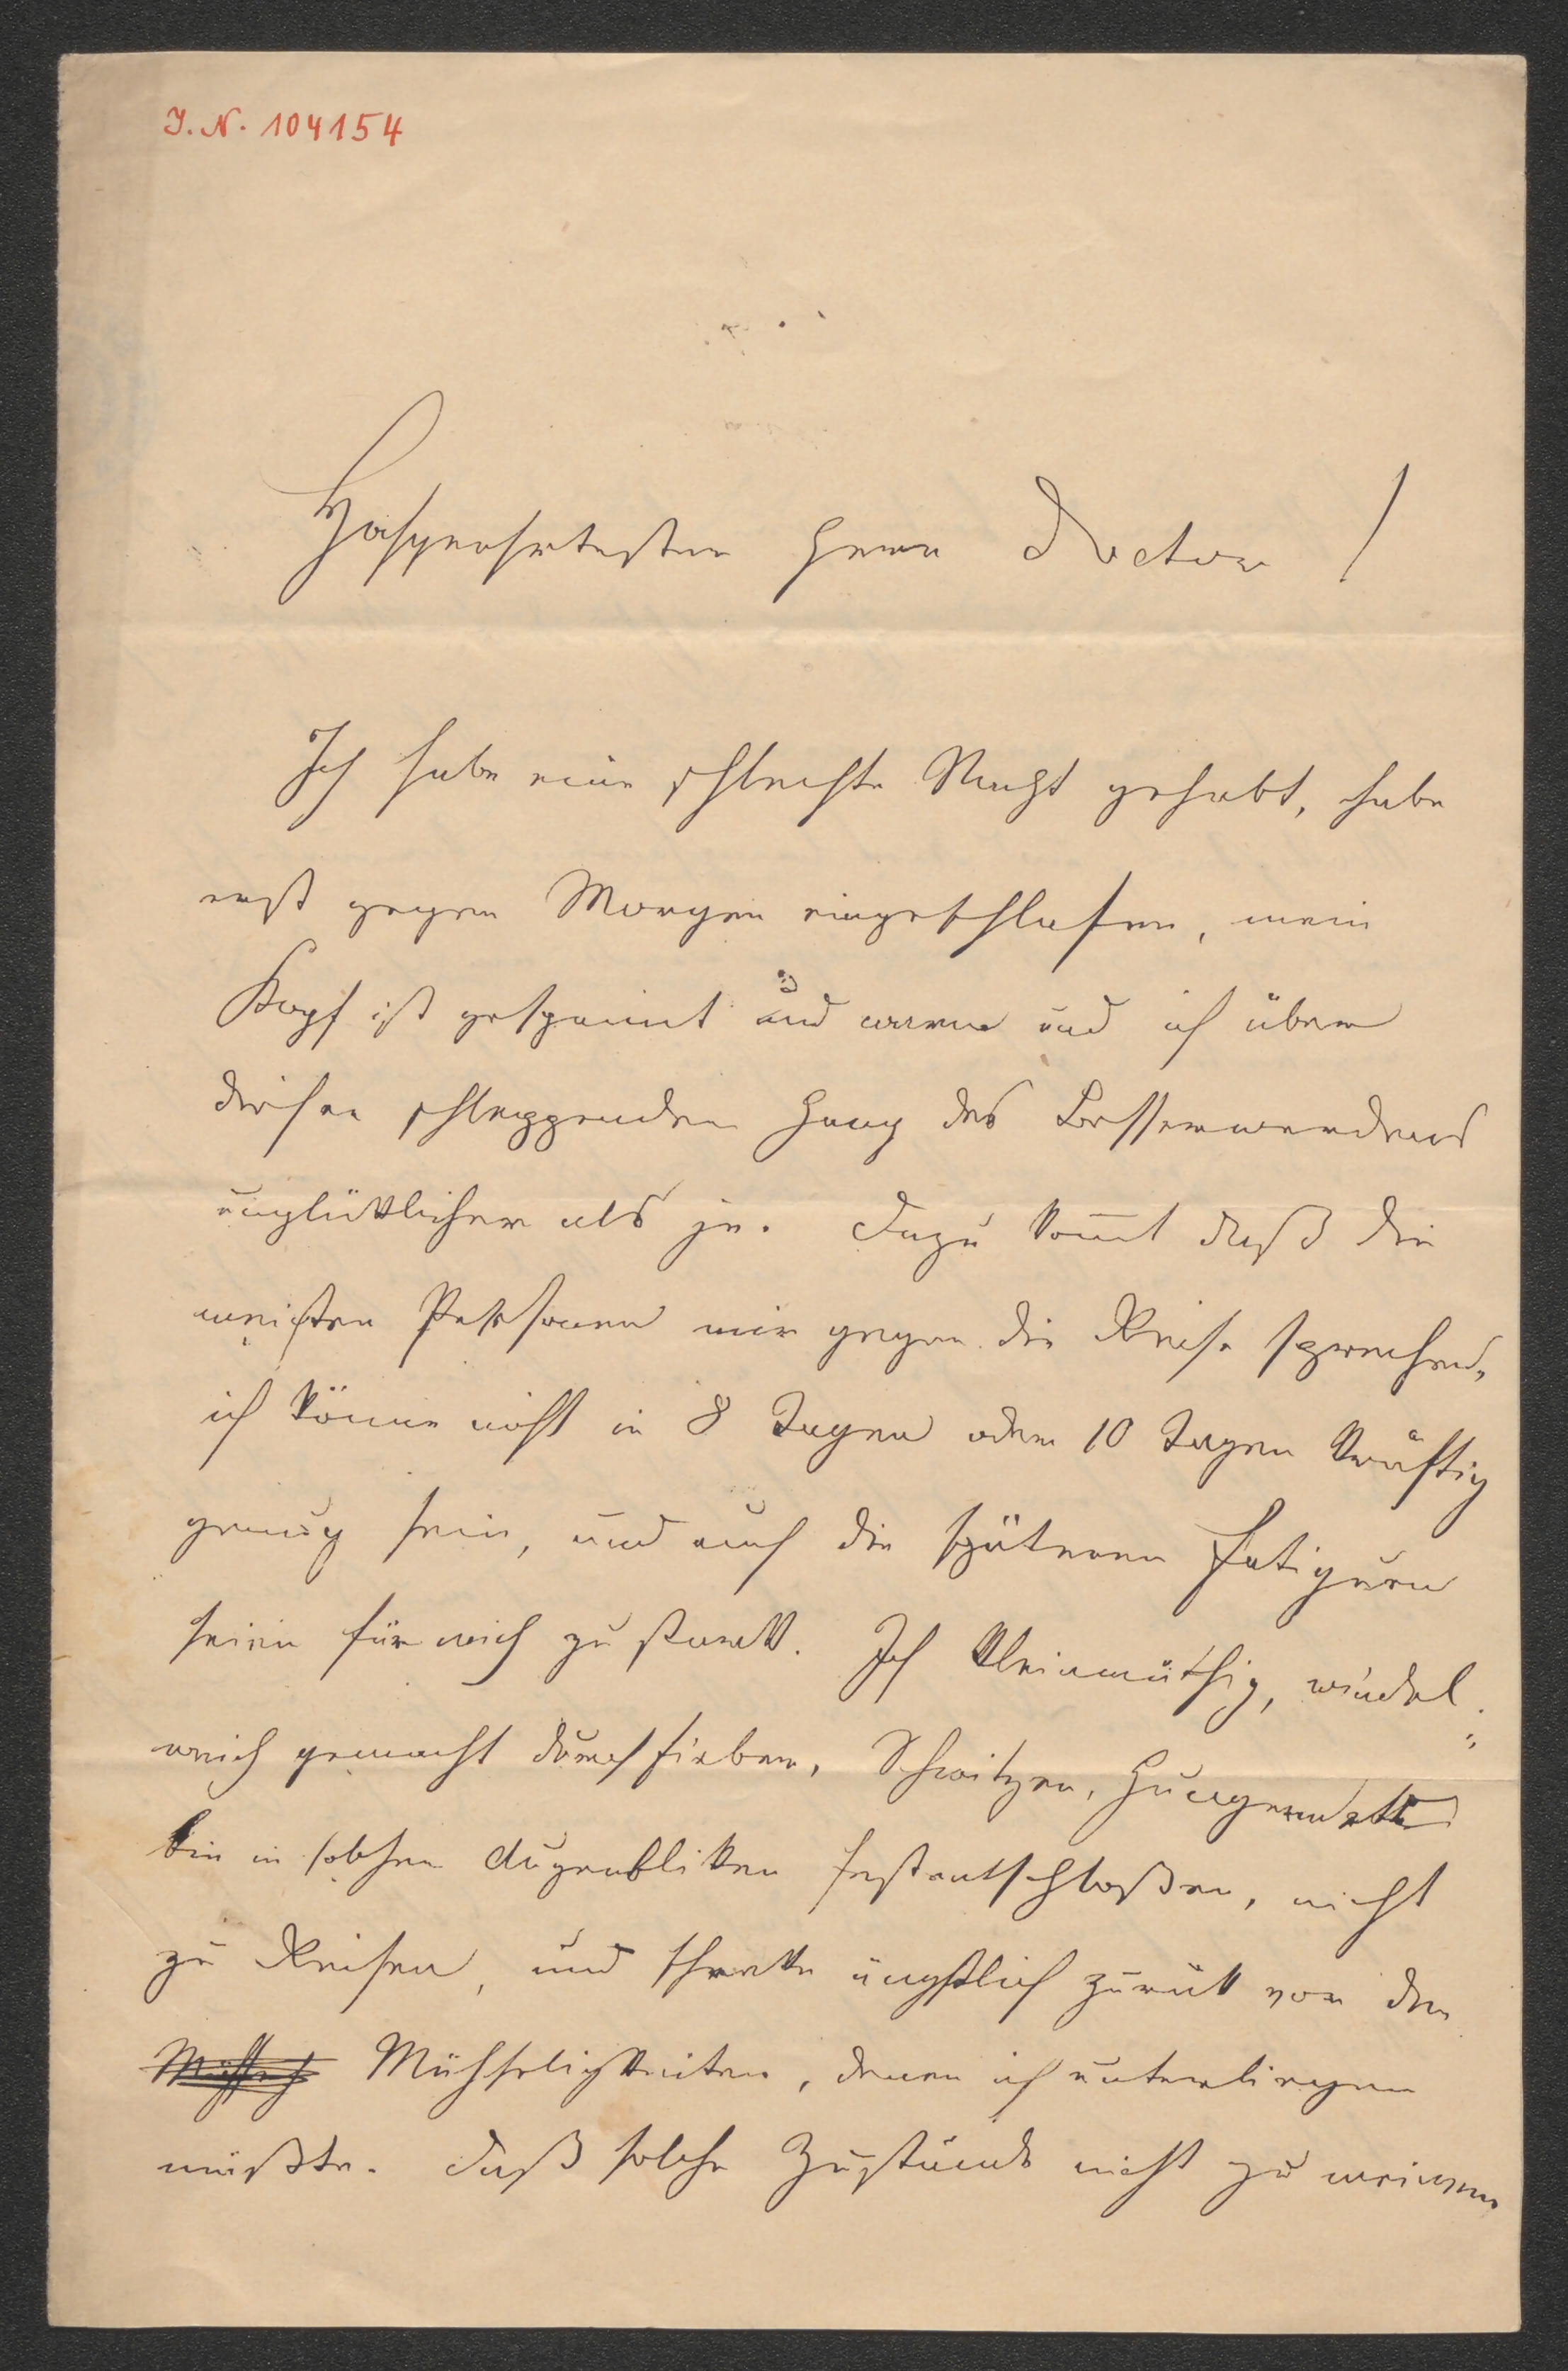 I. N. 104154
Hochgeehrtester Herr Doctor!
Ich habe eine schlechte Nacht gehabt, habe
erst gegen Morgen eingeschlafen, mein
Kopf ist gespannt und warm und ich über
diesen schleppenden Gang des Besserwerdens
unglüklicher als je. Dazu komt daß die
meisten Personen mir gegen die Reise sprechen,
ich könne nicht in 8 Tagen oder 10 Tagen kräftig
genug sein, und auch die späteren Fatiguen
seien für mich zu stark. Ich kleinmüthig, windel-
weich gemacht durch Fieber, Schwitzen, Hungern etc
bin in solchen Augenbliken festentschloßen, nicht
zu Reisen, und schreke ängstlich zurük vor den
Mühseligkeiten, denen ich unterliegen
müßte. Daß solche Zustände nicht zu meinem